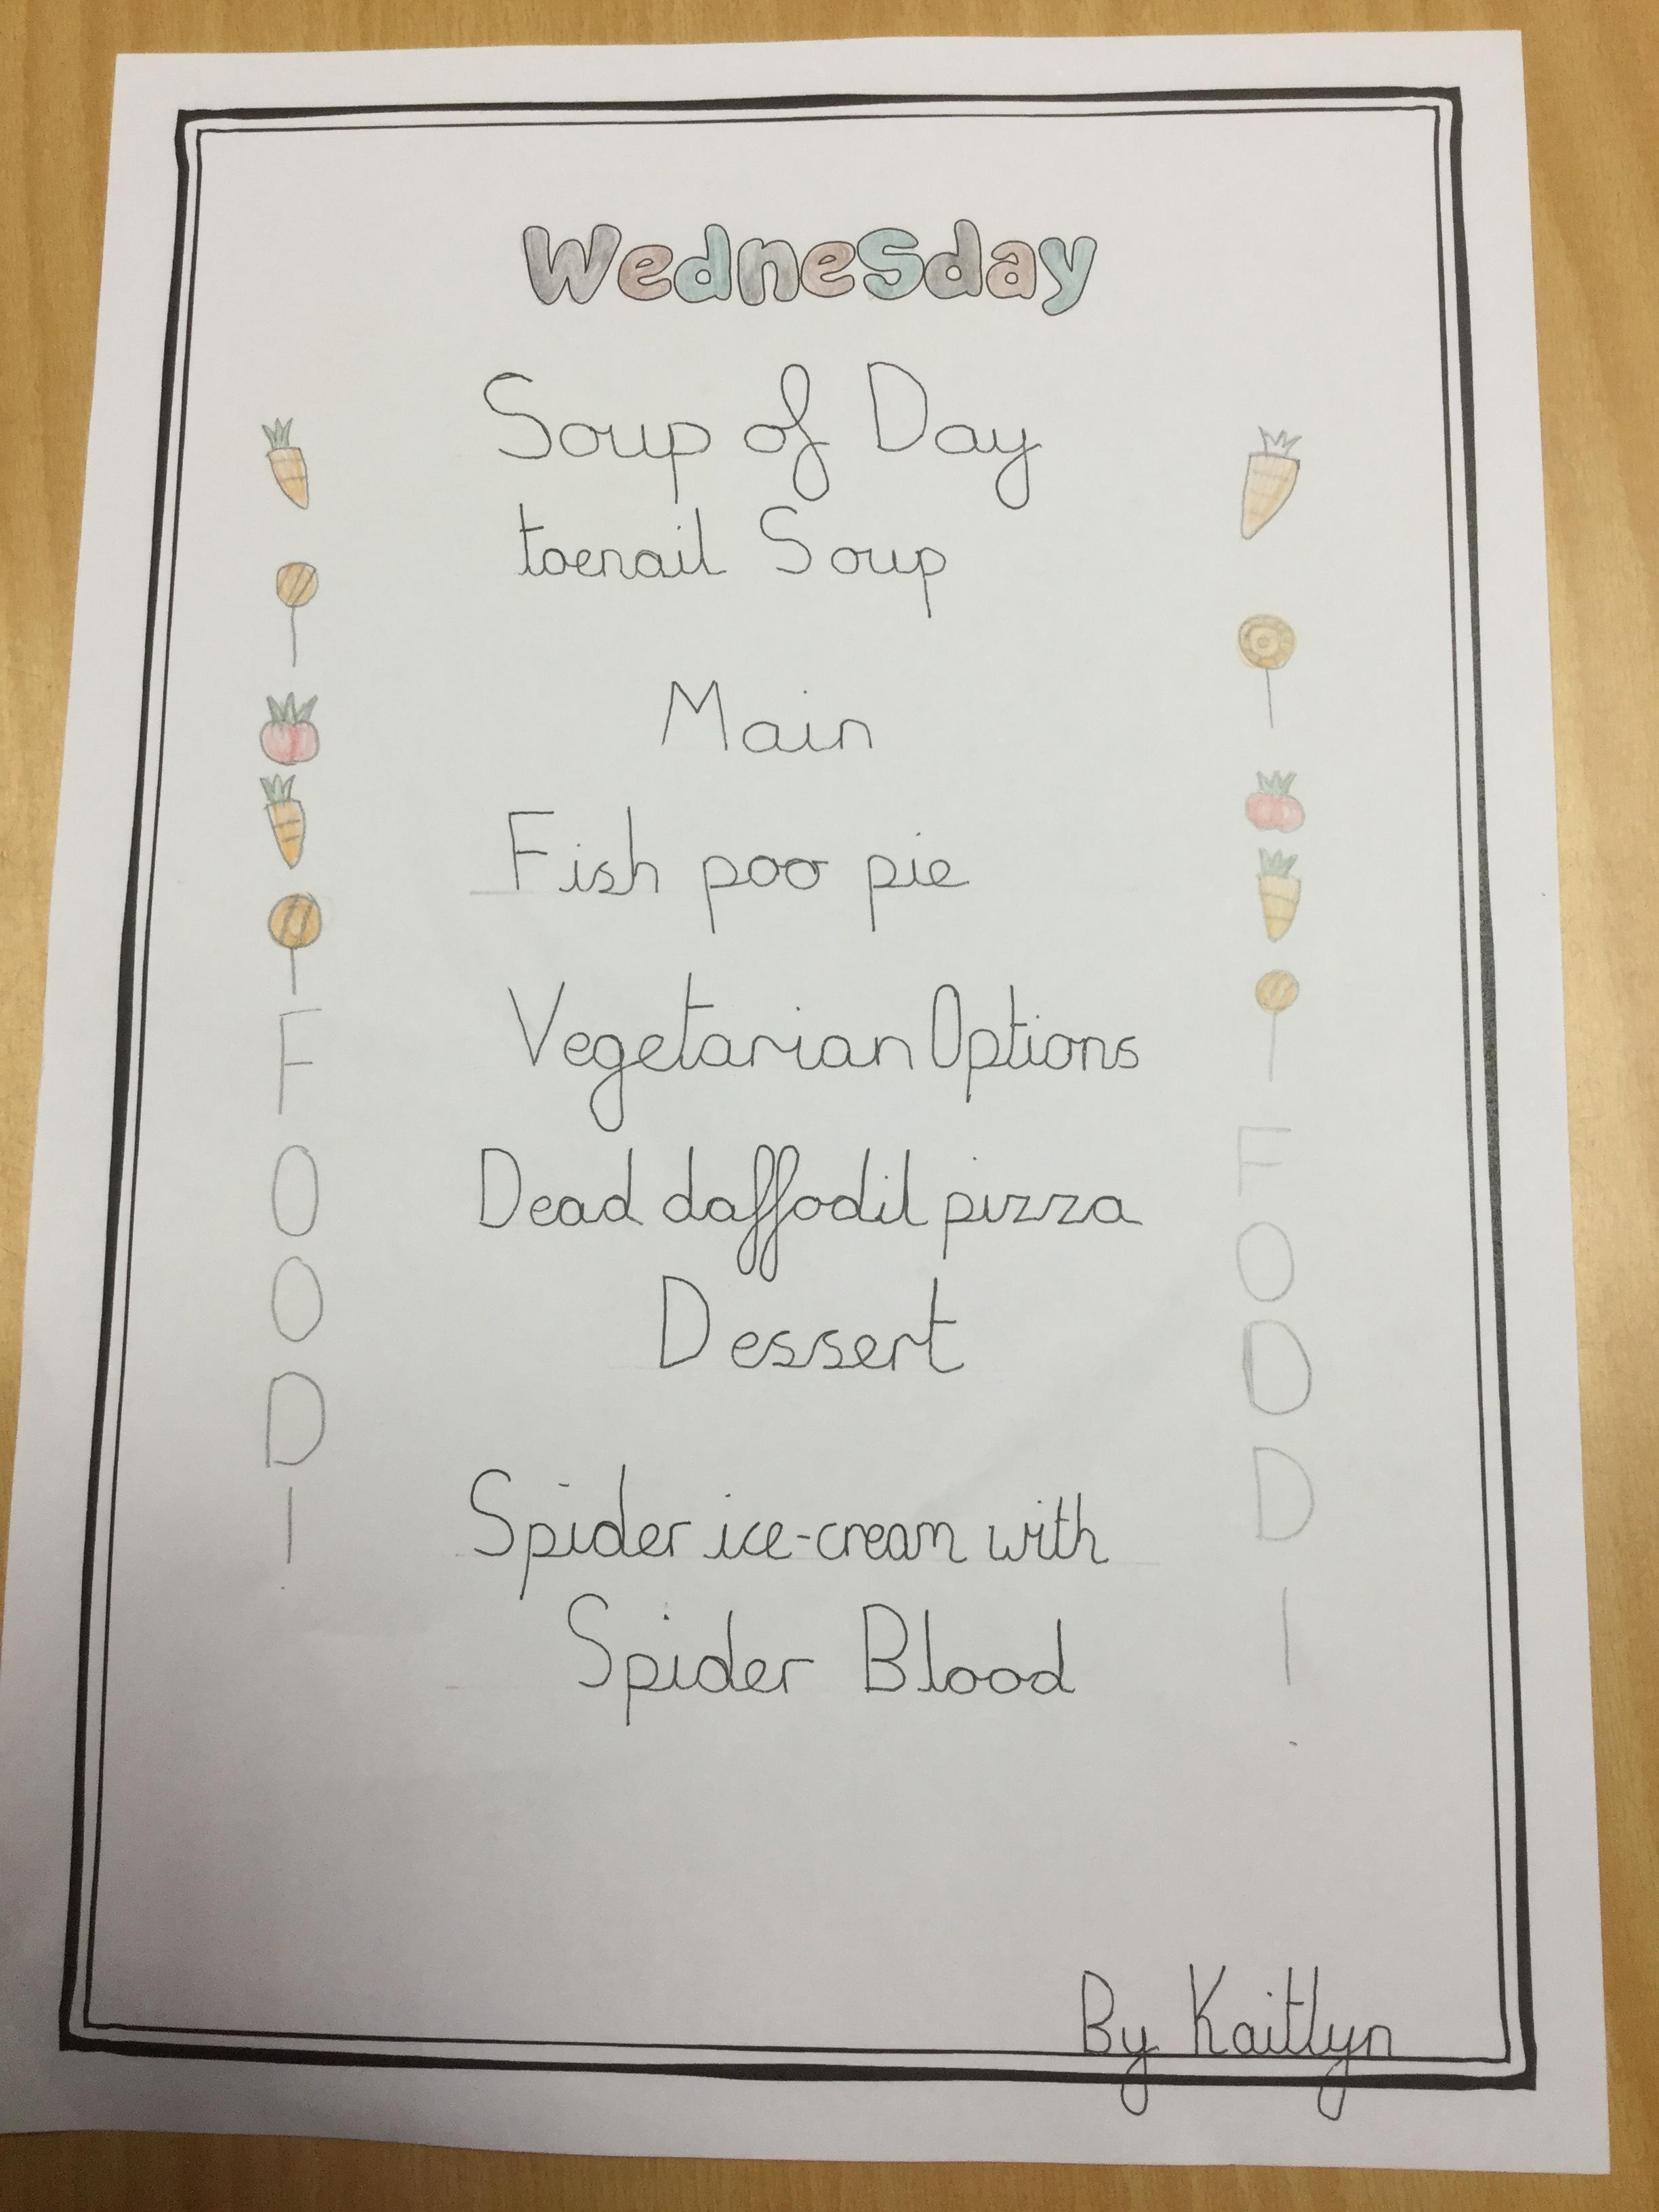 Wednesday
Soup of Day
toenail Soup
Main
Fish poo pie
Vegetarian Options
Dead daffodil pizza
Dessert
Spider ice-cream with
Spider Blood
FOOD!
FOOD!
By Kaitlyn